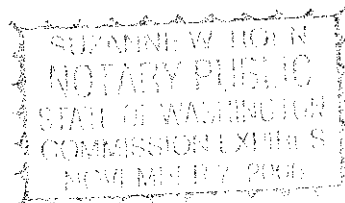 SUZANNE W.
NOTARY PUBLIC
STATE OF WASHINGTON
COMMISSION EXPIRES
NOVEMBER 7, 2006